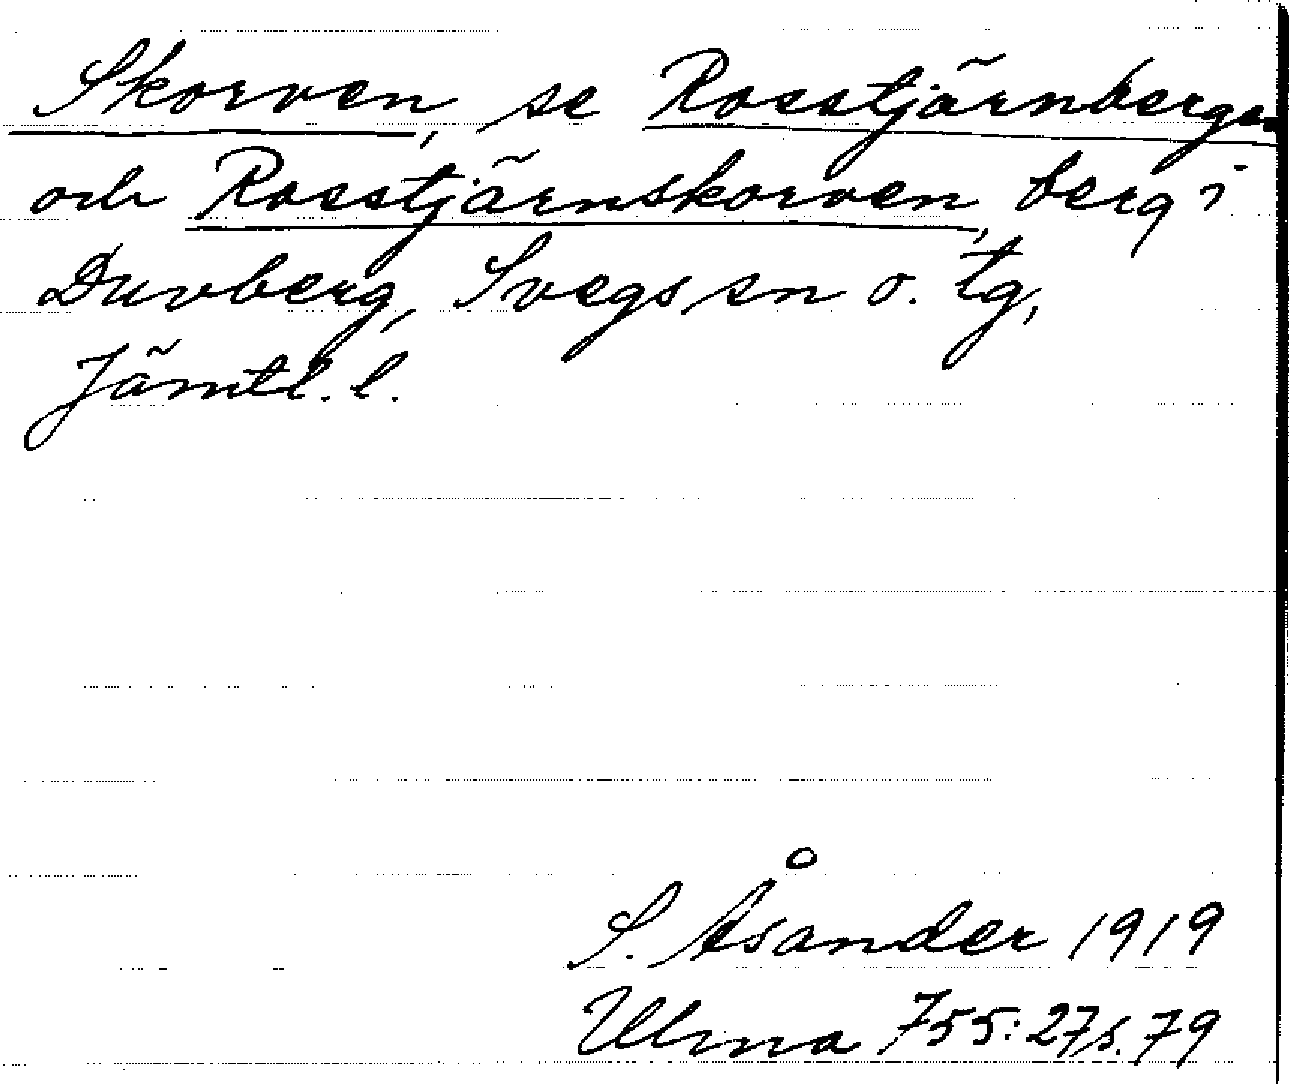 Skorven, se Rosstjärnbergen
och Rosstjärnskorven, berg i
Duvberg, Svegs sn o. tg,
Jämtl. l.
S. Åsander 1919
Ulma 755:27 s. 79